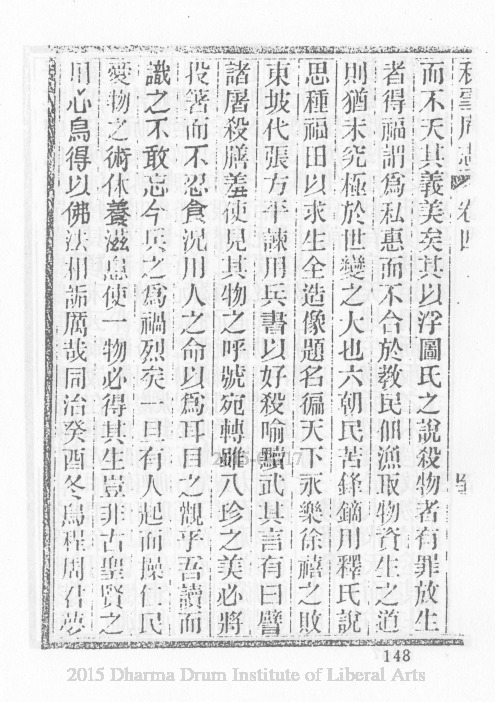 秋雪庵志 卷四
而不夭其義美矣其以浮圖氏之說殺物者有罪放生
者得福謂爲私惠而不合於教民佃漁取物資生之道
則猶未究極於世變之大也六朝民苦鋒鏑用釋氏說
思種福田以求生全造像題名徧天下永樂徐禧之敗
東坡代張方平諫用兵書以好殺喻黷武其言有曰譬
諸屠殺膳羞使見其物之呼號宛轉雖八珍之美必將
投箸而不忍食況用人之命以爲耳目之觀乎吾讀而
識之不敢忘今兵之爲禍烈矣一旦有人起而操仁民
愛物之術休養滋息使一物必得其生豈非古聖賢之
用心烏得以佛法相詬厲哉同治癸酉冬烏程周
夢
148
2015 Dharma Drum Institute of Liberal Arts